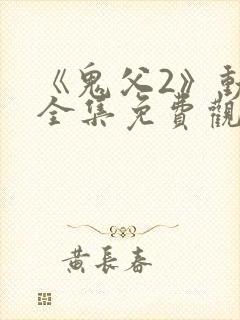 《鬼父2》動
全集免費觀
黃長春